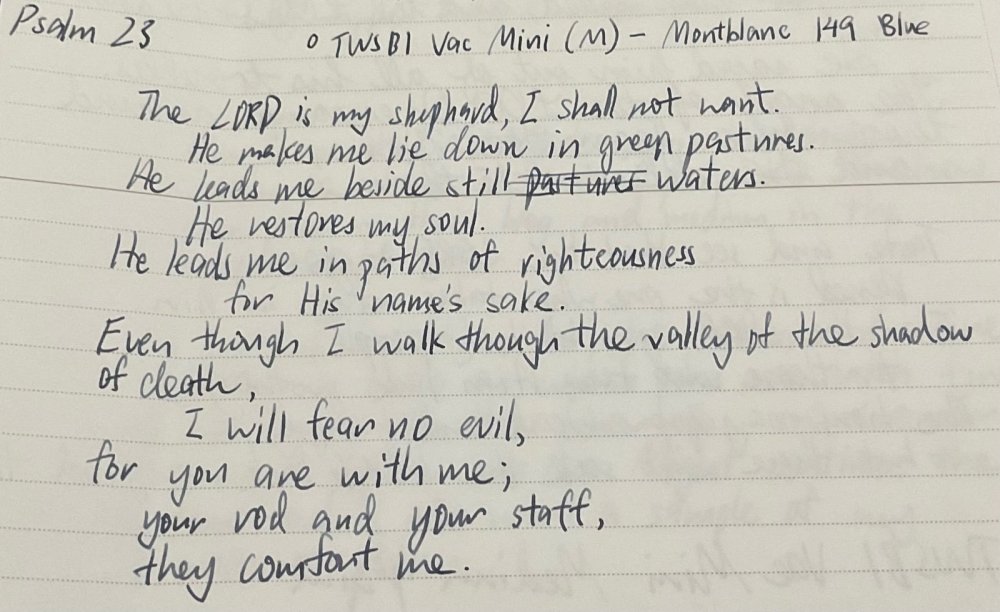 Psalm 23
o TWSBI Vac Mini (M) - Montblanc 149 Blue
The LORD is my shephard, I shall not want.
He makes me lie down in green pastures.
He leads me beside still pastures waters.
He restores my soul.
He leads me in paths of righteousness
for His name's sake.
Even though I walk though the valley of the shadow
of death,
I will fear no evil,
for you are with me;
your rod and your staff,
they comfort me.